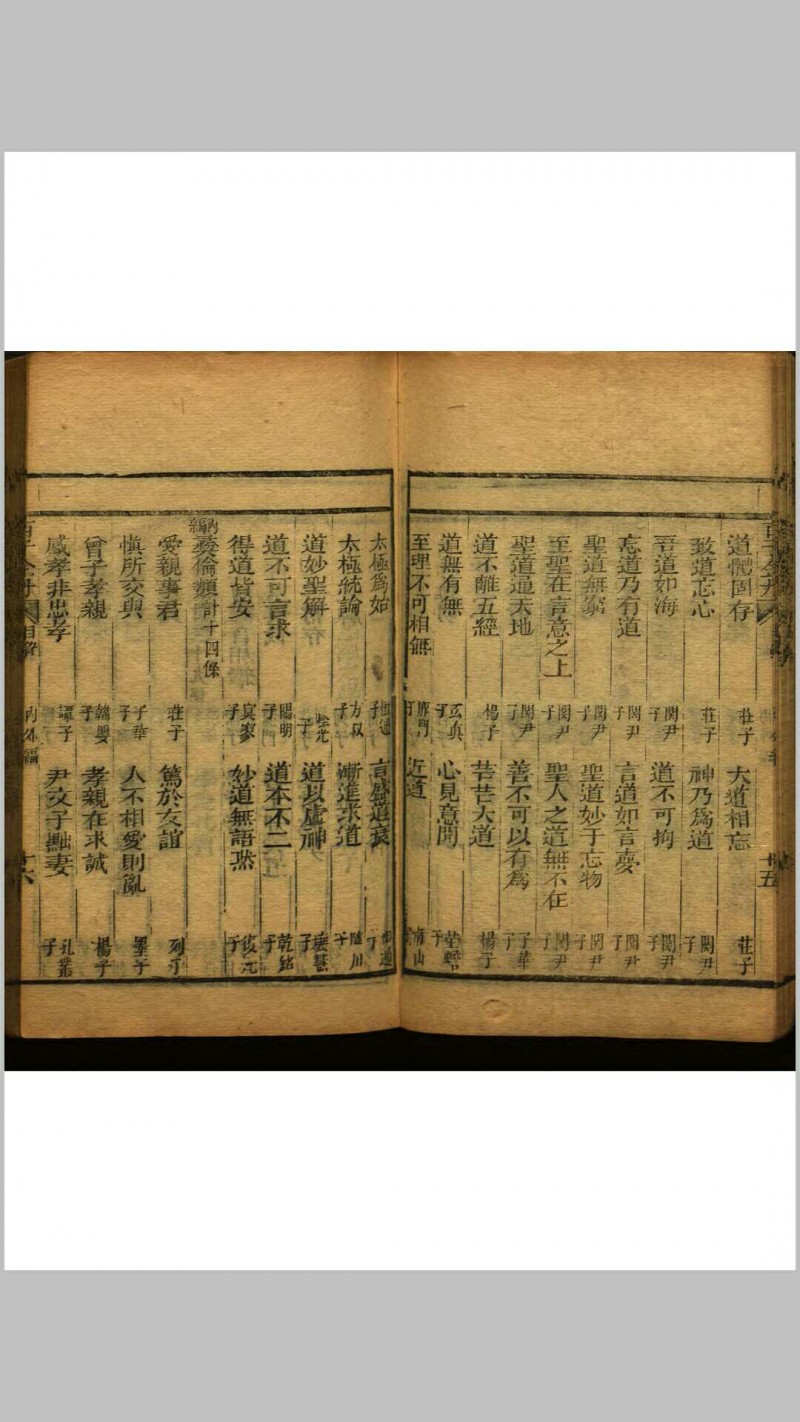 道體固存 莊子 大道相忘 莊子
致道忘心 莊子 神乃爲道 関尹子
吾道如海 関尹子 道不可拘 関尹子
忘道乃有道 関尹子 言道如言夢 関尹子
聖道無窮 関尹子 聖道妙于忘物 関尹子
至聖在言意之上 関尹子 聖人之道無不在 関尹子
聖道通天地 関尹子 善不可以有爲 子華子
道不離五經 楊子 芒芒大道 楊子
道無有無 玄真子 心見意聞
至理不可相無 近道
太極爲始 言盛道衰
太極統論 漸進求道
道妙聖解 道以虛神
道不可言求 陽明子 道本不二
得道皆安 妙道無語黙
內編 彝倫類 計十四條
愛親事君 莊子 篤於友誼 列子
慎所交與 子華子 人不相愛則亂 墨子
曾子孝親 韓嬰子 孝親在求誠 楊子
感孝非忠孝 譚子 尹文子黜妻 孔叢子
目錄 內外編 十六